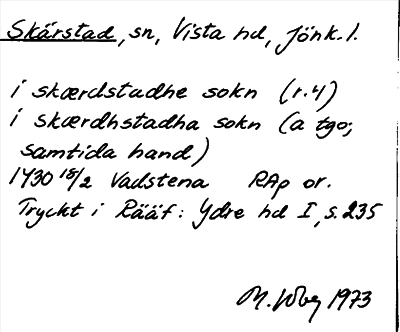 Skärstad, sn, Vista hd, Jönk. l.
i skærdstadhe sokn (r. 4)
i skærdhstadha sokn (a tgo;
samtida hand)
1430 15/2 Vadstena RAp or.
Tryckt i Rääf: Ydre hd I, s. 235
M. 1973